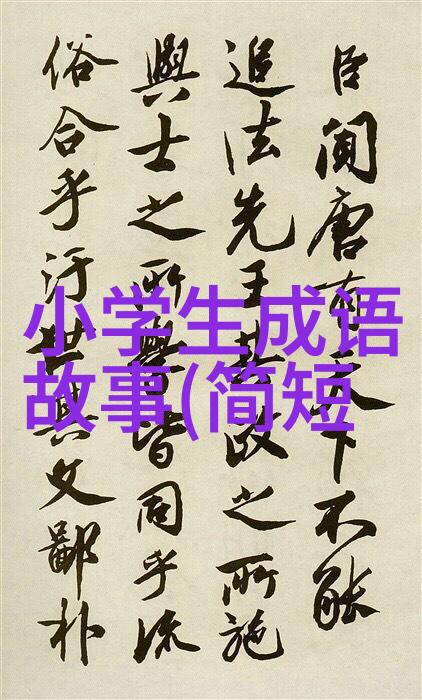 臣聞唐有天下不能
追法先王其政之所施
與士之所學皆同乎流
俗合乎汙世其文鄙朴
小学生成语
故事(简短